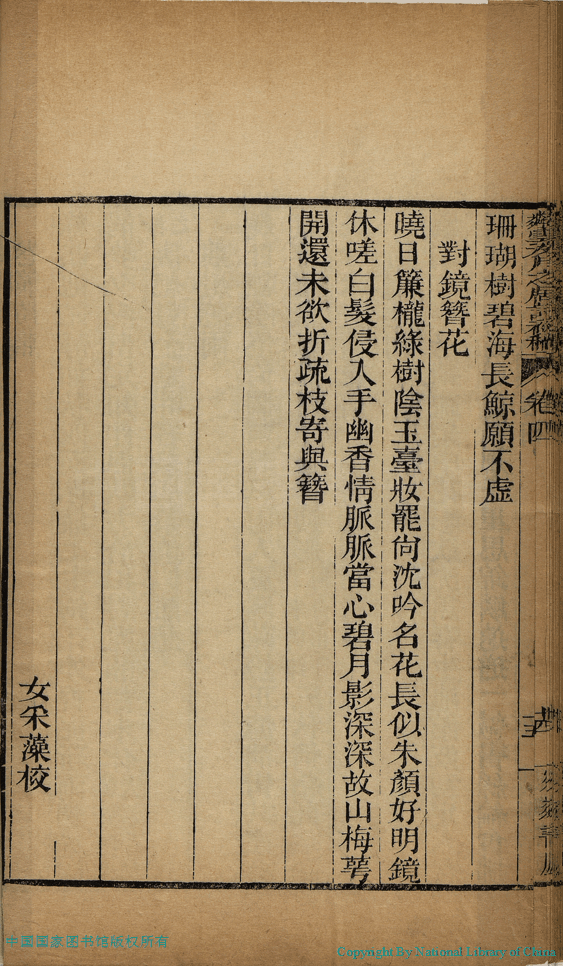 卷四
珊瑚樹碧海長鯨願不虛
對鏡簪花
曉日簾櫳綠樹陰玉臺妝罷尙沈吟名花長似朱顏好明鏡
休嗟白髮侵入手幽香情脈脈當心碧月影深深故山梅萼
開還未欲折疏枝寄與簪
女采藻校
中国国家图书馆版权所有
Copyright By National Library of China